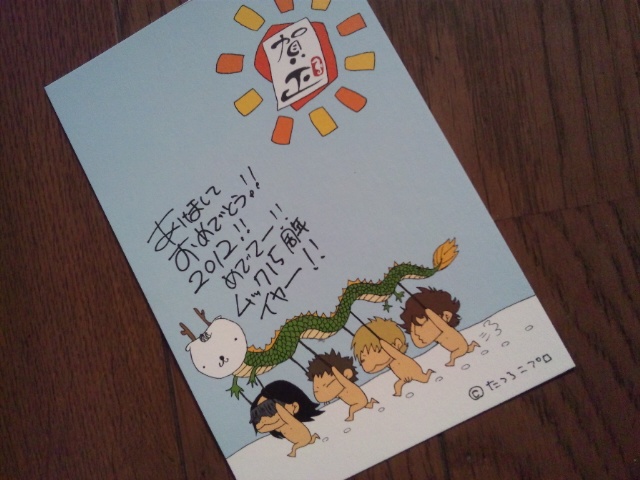 賀正
あけまして
おめでとう!!
2012!!
めでてー!!
ムック15周年
イヤー!!
© たつろこプロ